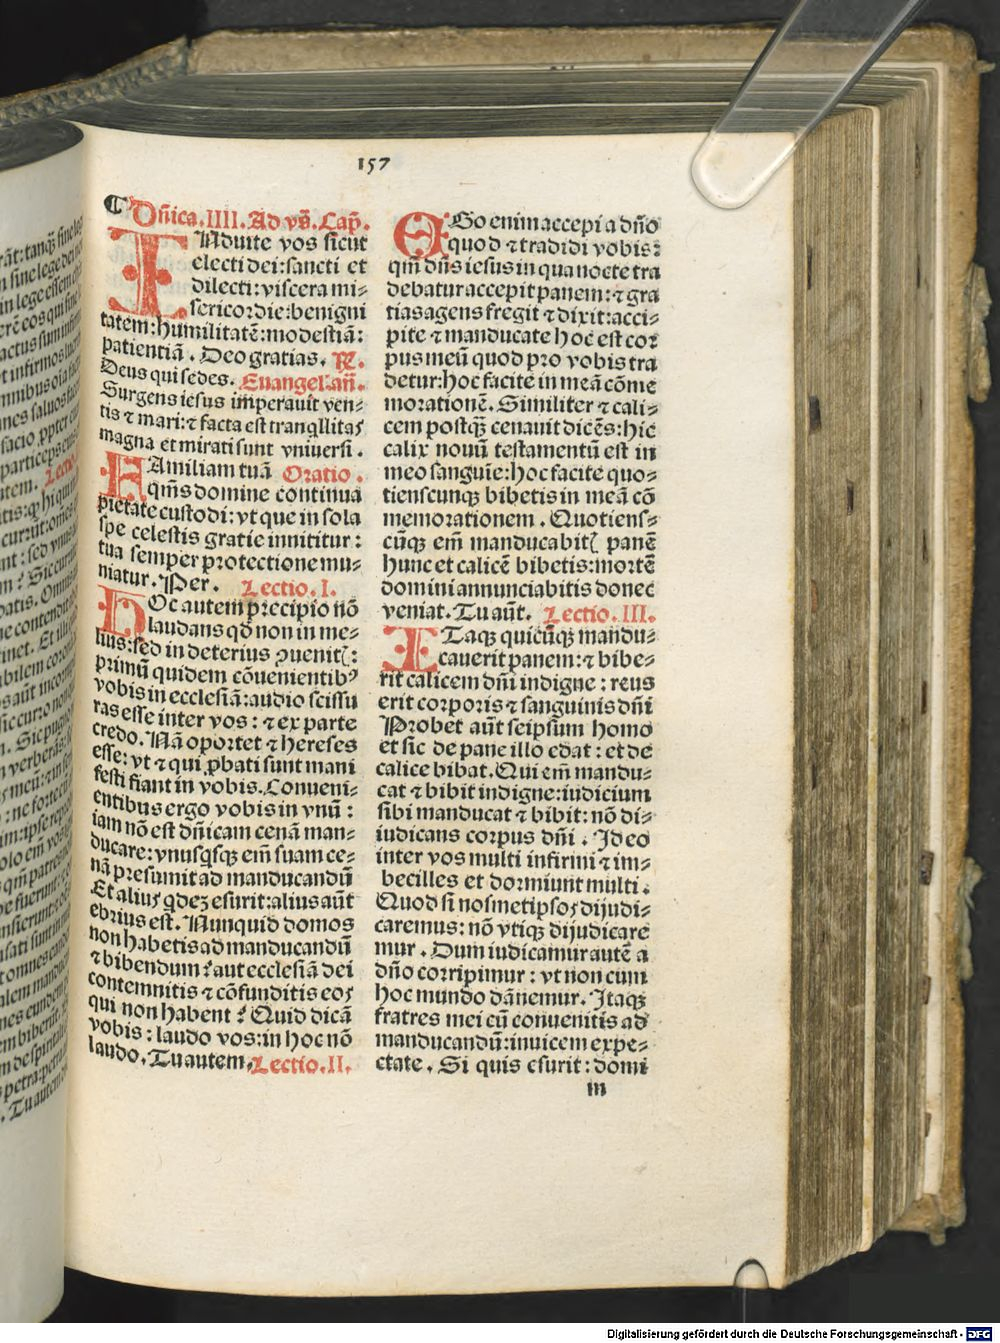 157
Dñica.IIII. Ad vñ. Cap̃.
INduite vos sicut
electi dei:sancti et
dilecti:viscera mi⸗
sericordie:benigni
tatem:humilitatē:modestiā:
patientiā. Deo gratias. ℟.
Deus qui sedes. Euangel'.añ.
Surgens iesus imperauit ven⸗
tis ⁊ mari:⁊ facta est tranqllitas
magna et mirati sunt vniuersi.
FAmiliam tuā Oratio.
qm̄s domine continua
pietate custodi:vt que in sola
spe celestis gratie innititur:
tua semper protectione mu⸗
niatur. Per. Lectio. I.
HOc autem precipio nō
laudans qd̄ non in me⸗
lius:sed in deterius ꝯuenitꝭ:
primū quidem cōuenientibꝰ
vobis in ecclesiā:audio scissu
ras esse inter vos:⁊ ex parte
credo. Nā oportet ⁊ hereses
esse: vt ⁊ qui ꝓbati sunt mani
festi fiant in vobis. Conueni⸗
entibus ergo vobis in vnū:
iam nō est dñicam cenā man⸗
ducare:vnusqsqꝫ em̄ suam ce⸗
nā presumit ad manducandū
Et alius qdeꝫ esurit:alius aūt
ebrius est. Nunquid domos
non habetis ad manducandū
⁊ bibendum? aut ecclesiā dei
contemnitis ⁊ cōfunditis eos
qui non habent? Quid dicā
vobis: laudo vos:in hoc nō
laudo. Tu autem. Lectio.II.
EGo enim accepi a dño
quod ⁊ tradidi vobis:
qm̄ dñs iesus in qua nocte tra
debatur accepit panem:⁊ gra
tias agens fregit ⁊ dixit:acci⸗
pite ⁊ manducate hoc est cor
pus meū quod pro vobis tra
detur:hoc facite in meā cōme
morationē. Similiter ⁊ cali⸗
cem postqꝫ̄ cenauit dicēs:hic
calix nouū testamentū est in
meo sanguīe:hoc facite quo⸗
tienscunqꝫ bibetis in meā cō
memorationem. Quotiens⸗
cūqꝫ em̄ manducabitꝭ panē
hunc et calicē bibetis:mortē
domini annunciabitis donec
veniat. Tu aūt. Lectio.III.
ITaqꝫ quicūqꝫ mandu⸗
cauerit panem:⁊ bibe⸗
rit calicem dñi indigne: reus
erit corporis ⁊ sanguinis dñi
Probet aūt seipsum homo
et sic de pane illo edat: et de
calice bibat. Qui em̄ mandu⸗
cat ⁊ bibit indigne:iudicium
sibi manducat ⁊ bibit: nō di⸗
iudicans corpus dñi. Ideo
inter vos multi infirmi ⁊ im⸗
becilles et dormiunt multi.
Quod si nosmetipsos dijudi⸗
caremus: nō vtiqꝫ dijudicare
mur. Dum iudicamur autē a
dño corripimur: vt non cum
hoc mundo dānemur. Itaqꝫ
fratres mei cū conuenitis ad
manducandū:inuicem expe⸗
ctate. Si quis esurit: domi
m
Digitalisierung gefördert durch die Deutsche Forschungsgemeinschaft - DFG